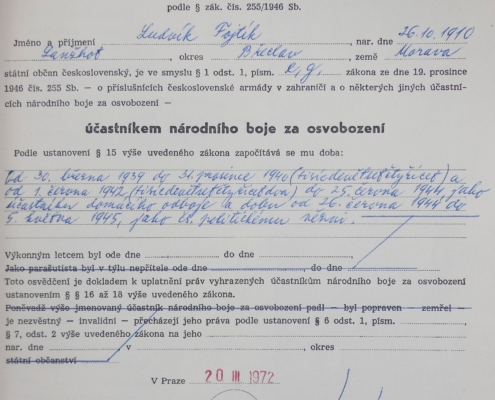 podle § zák. čís. 255/1946 Sb.
Jméno a příjmení Ludvík Fojtík, nar. dne 26.10.1910
Lanžhot, okres Břeclav, země Morava
státní občan československý, je ve smyslu § 1 odst. 1, písm. e, g, zákona ze dne 19. prosince
1946 čís. 255 Sb. — o příslušnících československé armády v zahraničí a o některých jiných účastní-
cích národního boje za osvobození —
účastníkem národního boje za osvobození
Podle ustanovení § 15 výše uvedeného zákona započítává se mu doba:
Od 30. března 1939 do 31. prosince 1940 (tisícdevětsetčtyřicet) a
od 1. června 1942 (tisícdevětsetčtyřicetdva) do 25. června 1944, jako
účastníku domácího odboje a dobu od 26. června 1944 do
5. května 1945, jako čs. politickému vězni.
Výkonným letcem byl ode dne do dne ,
Jako parašutista byl v týlu nepřítele ode dne , do dne
Toto osvědčení je dokladem k uplatnění práv vyhrazených účastníkům národního boje za osvobození
ustanovením § § 16 až 18 výše uvedeného zákona.
Poněvadž výše jmenovaný účastník národního boje za osvobození padl — byl popraven zemřel —
je nezvěstný — invalidní — přecházejí jeho práva podle ustanovení § 6 odst. 1, písm.
§ 7, odst. 2 výše uvedeného zákona na jeho
nar. dne , v , okres
státní občanství
V Praze 20 III 1972